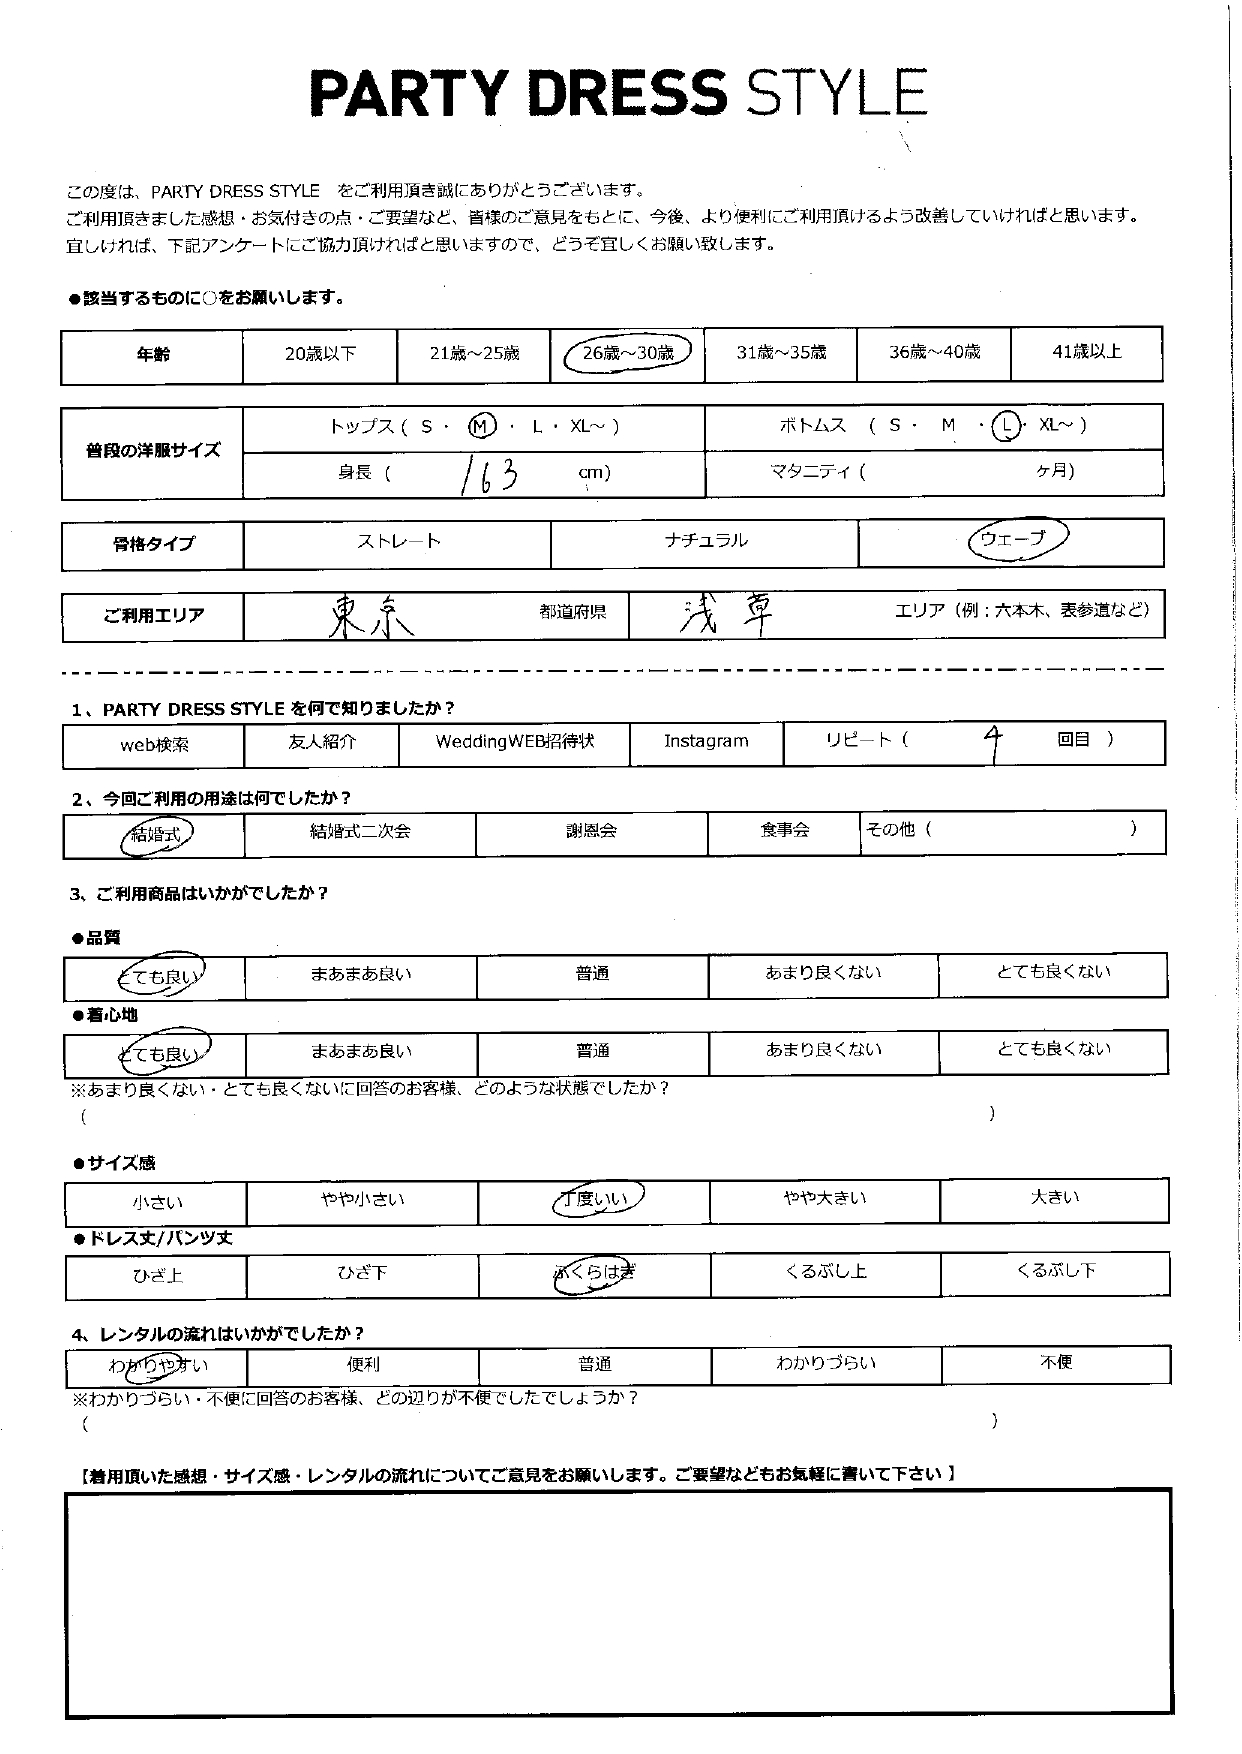 PARTY DRESS STYLE
この度は、PARTY DRESS STYLE をご利用頂き誠にありがとうございます。
ご利用頂きました感想・お気付きの点・ご要望など、皆様のご意見をもとに、今後、より便利にご利用頂けるよう改善していければと思います。
宜しければ、下記アンケートにご協力頂ければと思いますので、どうぞ宜しくお願い致します。
●該当するものに○をお願いします。
年齢 20歳以下 21歳～25歳 26歳～30歳 31歳～35歳 36歳～40歳 41歳以上
普段の洋服サイズ トップス ( S ・ M ・ L ・ XL～ ) ボトムス ( S ・ M ・ L ・ XL～ )
身長 ( 163 cm) マタニティ ( ヶ月)
骨格タイプ ストレート ナチュラル ウェーブ
ご利用エリア 東京 都道府県 浅草 エリア（例：六本木、表参道など）
1、PARTY DRESS STYLE を何で知りましたか？
web検索 友人紹介 WeddingWEB招待状 Instagram リピート ( 4 回目 )
2、今回ご利用の用途は何でしたか？
結婚式 結婚式二次会 謝恩会 食事会 その他 ( )
3、ご利用商品はいかがでしたか？
●品質
とても良い まあまあ良い 普通 あまり良くない とても良くない
●着心地
とても良い まあまあ良い 普通 あまり良くない とても良くない
※あまり良くない・とても良くないに回答のお客様、どのような状態でしたか？
( )
●サイズ感
小さい やや小さい 丁度いい やや大きい 大きい
●ドレス丈/パンツ丈
ひざ上 ひざ下 ふくらはぎ くるぶし上 くるぶし下
4、レンタルの流れはいかがでしたか？
わかりやすい 便利 普通 わかりづらい 不便
※わかりづらい・不便に回答のお客様、どの辺りが不便でしたでしょうか？
( )
【着用頂いた感想・サイズ感・レンタルの流れについてご意見をお願いします。ご要望などもお気軽に書いて下さい 】